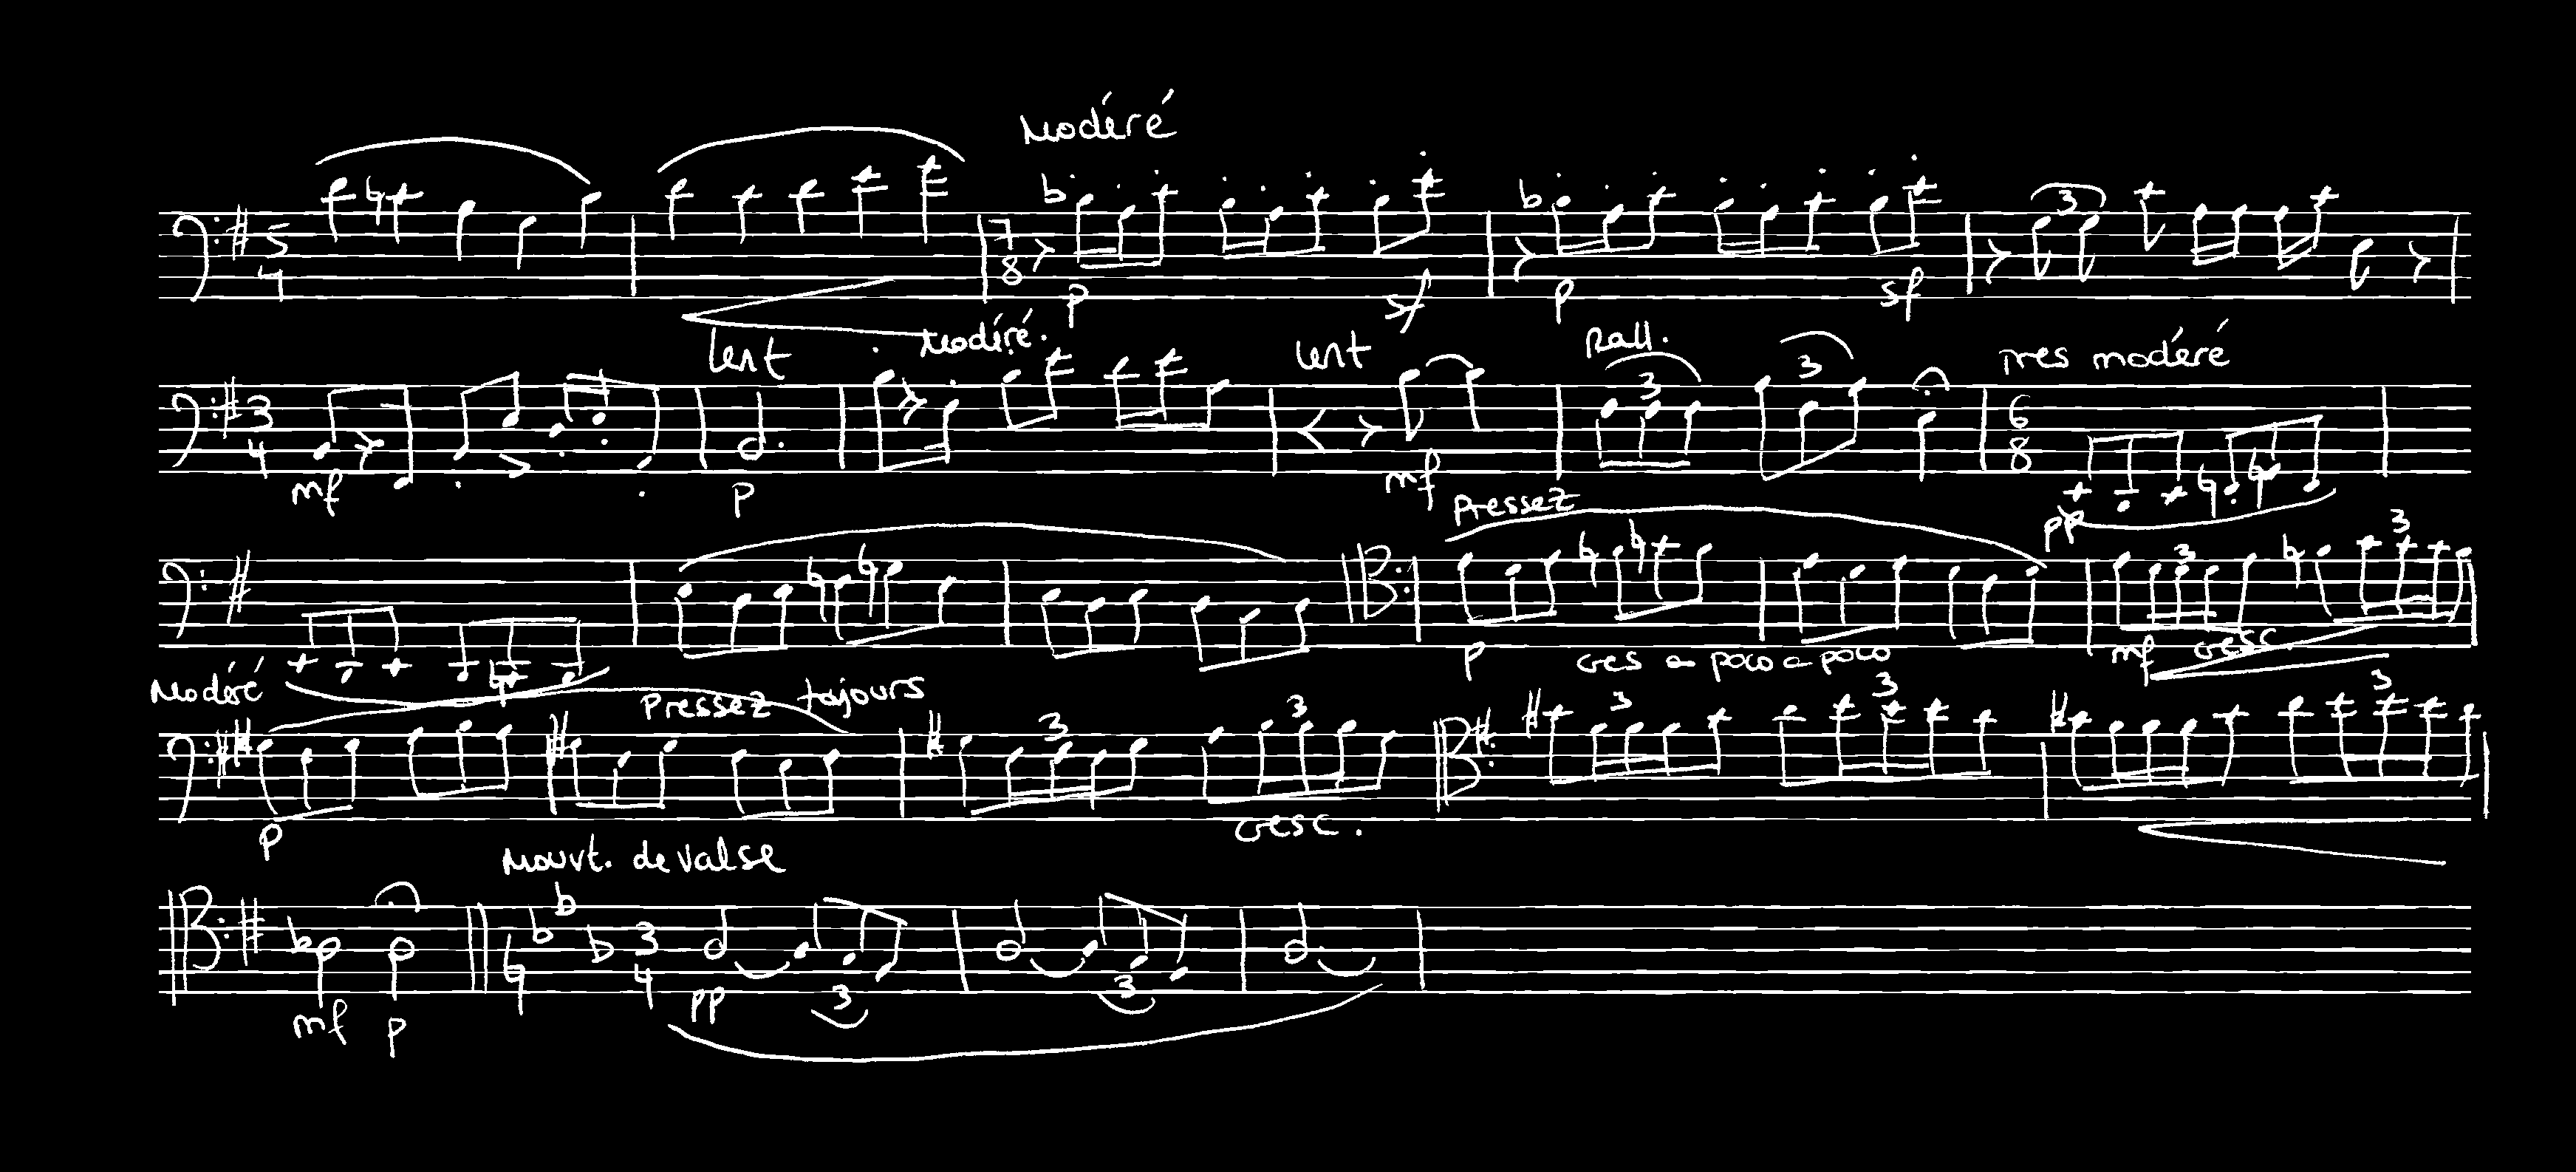 Modéré
3
5 4 7 8
p sf p sf
lent Modéré. lent Rall. Tres modéré
3 3
3 4 6 8
mf p mf
Pressez pp
3 3
p cres a poco a poco mf cresc.
Modéré Pressez tojours
3 3 3 3
p cresc.
Mouvt. de valse
3 4
mf p pp 3 3